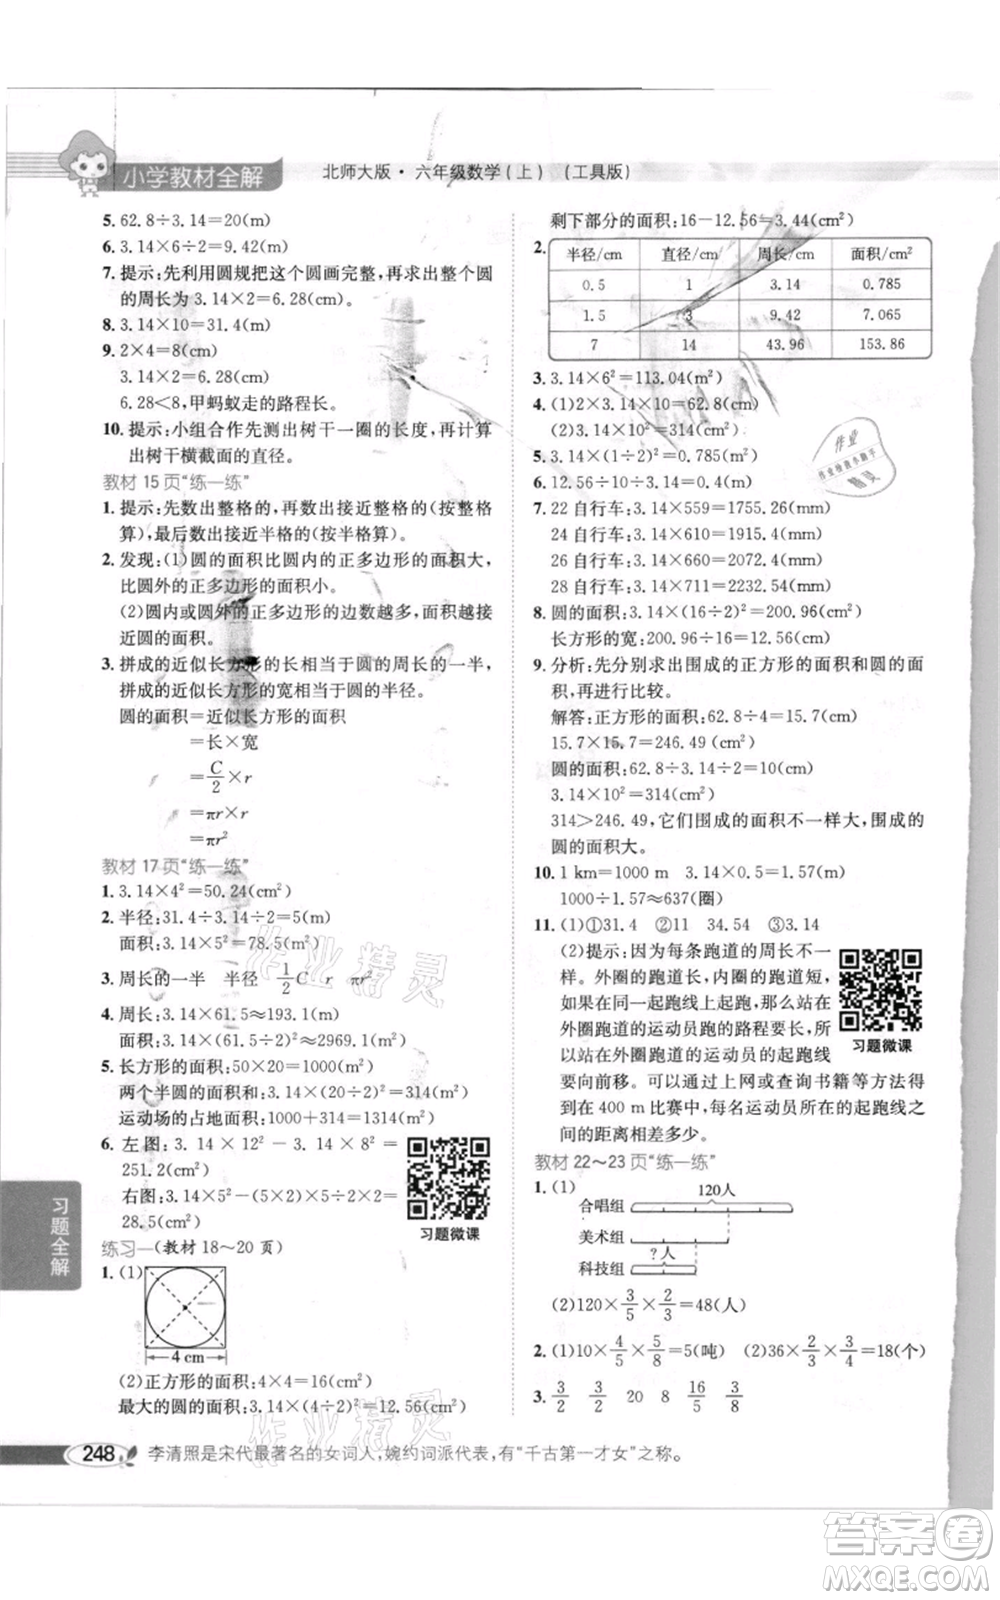 小学教材全解
北师大版·六年级数学(上) (工具版)
5. 62.8÷3.14=20(m)
6. 3.14×6÷2=9.42(m)
7. 提示:先利用圆规把这个圆画完整,再求出整个圆
的周长为 3.14×2=6.28(cm)。
8. 3.14×10=31.4(m)
9. 2×4=8(cm)
3.14×4÷2=6.28(cm)
6.28<8,甲蚂蚁走的路程长。
10. 提示:小组合作先测出树干一圈的长度,再计算
出树干横截面的直径。
教材 15 页“练一练”
1. 提示:先数出整格的,再数出接近整格的(按整格
算),最后数出接近半格的(按半格算)。
2. 发现:(1)圆的面积比圆内的正多边形的面积大,
比圆外的正多边形的面积小。
(2)圆内或圆外的正多边形的边数越多,面积越接
近圆的面积。
3. 拼成的近似长方形的长相当于圆的周长的一半,
拼成的近似长方形的宽相当于圆的半径。
圆的面积=近似长方形的面积
=长×宽
=C/2×r
=πr×r
=πr²
教材 17 页“练一练”
1. 3.14×4²=50.24(cm²)
2. 半径:31.4÷3.14÷2=5(m)
面积:3.14×5²=78.5(m²)
3. 周长的一半 半径 1/2C r πr²
4. 周长:3.14×61.5≈193.1(m)
面积:3.14×(61.5÷2)²≈2969.1(m²)
5. 长方形的面积:50×20=1000(m²)
两个半圆的面积和:3.14×(20÷2)²=314(m²)
运动场的占地面积:1000+314=1314(m²)
6. 左图:3.14×12²-3.14×8²=
251.2(cm²)
右图:3.14×(10÷2)²-10×5=
28.5(cm²)
习题微课
练习一(教材 18~20 页)
1. (1)
4 cm
(2)正方形的面积:4×4=16(cm²)
最大的圆的面积:3.14×(4÷2)²=12.56(cm²)
剩下部分的面积:16-12.56=3.44(cm²)
2. 半径/cm 直径/cm 周长/cm 面积/cm²
0.5 1 3.14 0.785
1.5 3 9.42 7.065
7 14 43.96 153.86
3. 3.14×6²=113.04(m²)
4. (1)2×3.14×10=62.8(cm)
(2)3.14×10²=314(cm²)
5. 3.14×(0.6÷2)²×3=0.8478(m²)
6. 12.56÷10÷3.14=0.4(m)
7. 22 自行车:3.14×559=1755.26(mm)
24 自行车:3.14×610=1915.4(mm)
26 自行车:3.14×660=2072.4(mm)
28 自行车:3.14×711=2232.54(mm)
8. 圆的面积:3.14×(16÷2)²=200.96(cm²)
长方形的宽:200.96÷16=12.56(cm)
9. 分析:先分别求出围成的正方形的面积和圆的面
积,再进行比较。
解答:正方形的面积:62.8÷4=15.7(cm)
15.7×15.7=246.49(cm²)
圆的面积:62.8÷3.14÷2=10(cm)
3.14×10²=314(cm²)
314>246.49,它们围成的面积不一样大,围成的
圆的面积大。
10. 1 km=1000 m 3.14×0.5=1.57(m)
1000÷1.57≈637(圈)
11. (1)①31.4 ②11 34.54 ③3.14
(2)提示:因为每条跑道的周长不一
样,外圈的跑道长,内圈的跑道短,
如果在同一起跑线上起跑,那么站在
外圈跑道的运动员跑的路程要长,所
以站在外圈跑道的运动员的起跑线
要向前移。可以通过上网或查询书籍等方法,得
到在 400 m 比赛中,每名运动员所在的起跑线之
间的距离相差多少。
习题微课
教材 22~23 页“练一练”
1. (1)
120人
合唱组
美术组
?人
科技组
(2)120×3/5×2/3=48(人)
2. (1)10×4/5×5/8=5(吨) (2)36×2/3×3/4=18(个)
3. 3/2 3/2 20 8 16/5 3/8
习题全解
248
李清照是宋代最著名的女词人,婉约词派代表,有“千古第一才女”之称。
作业精灵
作业精灵
作业
作业检查小助手
精灵
答案卷